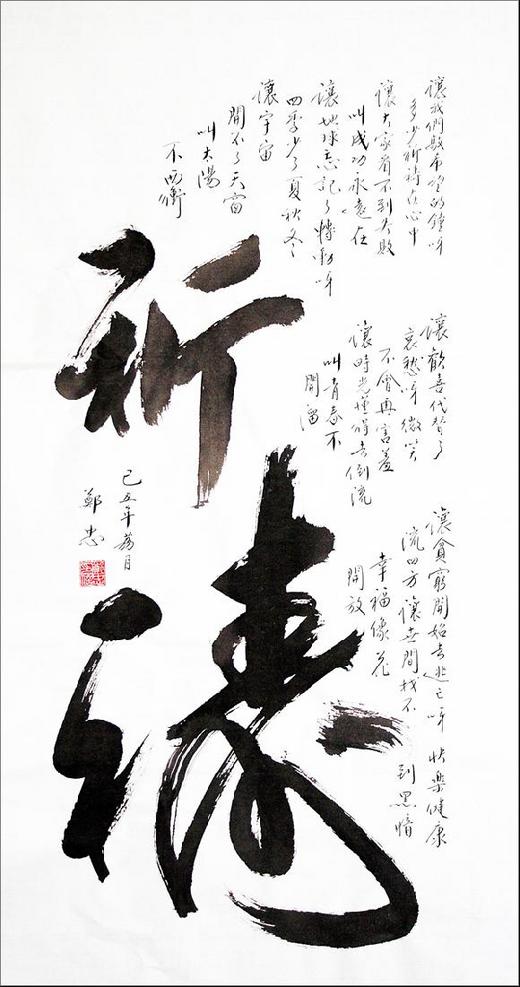 讓我們敲希望的鐘呀
多少祈禱在心中
讓大家看不到失敗
叫成功永遠在
讓地球忘記了轉動呀
四季少了夏秋冬
讓宇宙
關不了天窗
叫太陽
不西衝
讓歡喜代替了
哀愁呀微笑
不會再害羞
讓時光懂得去倒流
叫青春不
開溜
讓貪窮開始去逃亡呀 快樂健康
流四方 讓世間找不 到黑暗
幸福像花
開放
祈禱
己丑年荷月
鄭忠